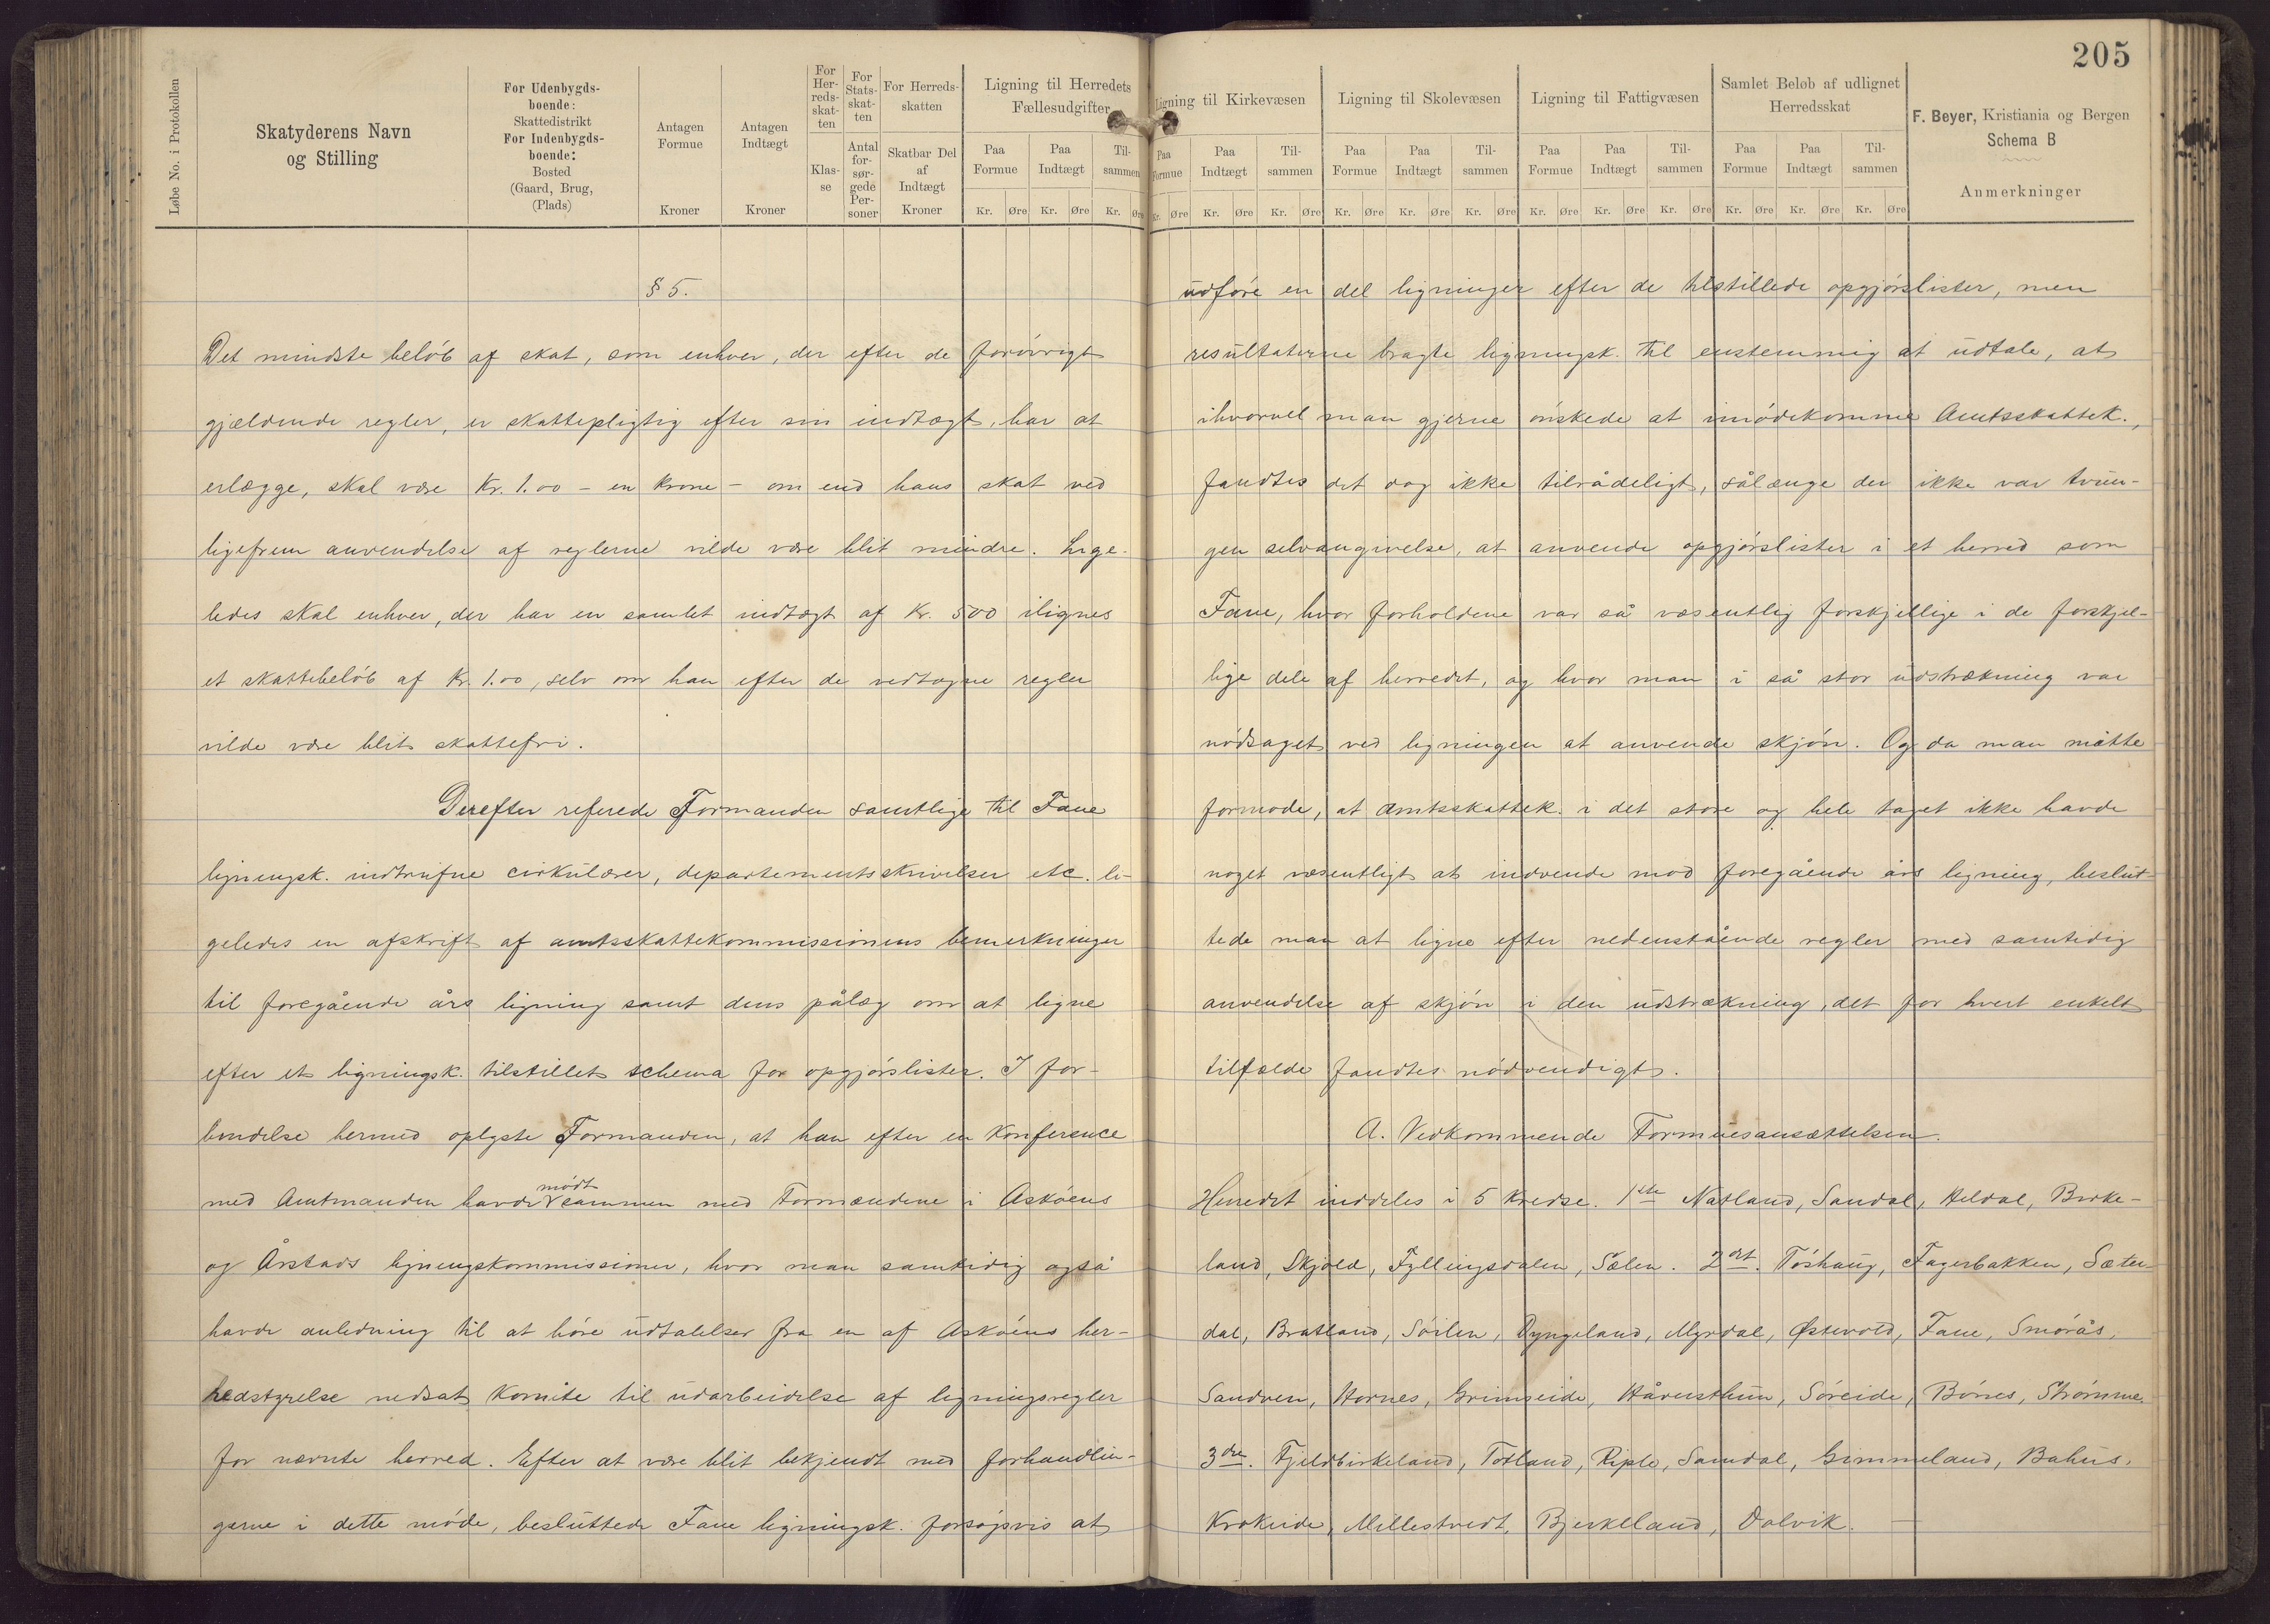 205
Løbe No. i Protokollen
Skatyderens Navn
og Stilling
For Udenbygds-
boende:
Skattedistrikt
For Indenbygds-
boende:
Bosted
(Gaard, Brug,
(Plads)
Antagen
Formue
Kroner
Antagen
Indtægt
Kroner
For
Her-
reds-
skat-
ten
Klas-
se
For
Stats-
skat-
ten
Antal
for-
sør-
gede
Per-
soner
For Herreds-
skatten
Skatbar Del
af
Indtægt
Kroner
Ligning til Herredets
Fællesudgifter
Paa
Formue
Paa
Indtægt
Til-
sammen
Kr. Øre Kr. Øre Kr. Øre
Ligning til Kirkevæsen
Paa
Formue
Paa
Indtægt
Til-
sammen
Kr. Øre Kr. Øre Kr. Øre
Ligning til Skolevæsen
Paa
Formue
Paa
Indtægt
Til-
sammen
Kr. Øre Kr. Øre Kr. Øre
Ligning til Fattigvæsen
Paa
Formue
Paa
Indtægt
Til-
sammen
Kr. Øre Kr. Øre Kr. Øre
Samlet Beløb af udlignet
Herredsskat
Paa
Formue
Paa
Indtægt
Til-
sammen
Kr. Øre Kr. Øre Kr. Øre
F. Beyer, Kristiania og Bergen
Schema B
Anmerkninger
§ 5.
Det mindste beløb af skat, som enhver, der efter de forøvrigt
gjældende regler, er skattepligtig efter sin indtægt, har at
erlægge, skal være Kr. 1.00 - en krone - om end hans skat ved
ligefrem anvendelse af reglerne vilde være blit mindre. Lige-
ledes skal enhver, der har en samlet indtægt af Kr. 500 ilignes
et skattebeløb af Kr. 1.00, selv om han efter de vedtagne regler
vilde være blit skattefri.
Derefter referede Formanden samtlige til Fane
ligningsk. indtrufne cirkulærer, departementsskrivelser etc. li-
geledes en afskrift af amtsskattekommissionens bemerkninger
til foregående års ligning samt dens pålæg om at ligne
efter et ligningsk. tilstillet schema for opgjørslister. I for-
bindelse hermed oplyste Formanden, at han efter en Konference
med Amtmanden havde mødt sammen med Formændene i Askøens
og Årstads ligningskommissioner, hvor man samtidig også
havde anledning til at høre udtalelser fra en af Askøens her-
redstyrelse nedsat Komite til udarbeidelse af ligningsregler
for nævnte herred. Efter at være blit bekjendt med forhandlin-
gerne i dette møde, besluttede Fane ligningsk. forsøgsvis at
udføre en del ligninger efter de tilstillede opgjørslister, men
resultaterne bragte ligningsk. til enstemmig at udtale, at
ihvorvel man gjerne ønskede at imødekomme Amtsskattek.,
fandtes det dog ikke tilrådeligt, sålænge der ikke var tvun-
gen selvangivelse, at anvende opgjørslister i et herred som
Fane, hvor forholdene var så væsentlig forskjellige i de forskjel-
lige dele af herredet, og hvor man i så stor udstrækning var
nødsaget ved ligningen at anvende skjøn. Og da man måtte
formode, at Amtsskattek. i det store og hele taget ikke havde
noget væsentligt at indvende mod foregående års ligning, beslut-
tede man at ligne efter nedenstående regler med samtidig
anvendelse af skjøn i den udstrækning, det for hvert enkelt
tilfælde fandtes nødvendigt.
A. Vedkommende Formuesansættelsen.
Herredet inddeles i 5 Kredse. 1ste Natland, Sandal, Heldal, Birke-
land, Skjold, Fyllingsdalen, Sælen. 2det. Tøshaug, Fagerbakken, Sæter-
dal, Bratland, Søilen, Dyngeland, Myrdal, Østevold, Fane, Smørås,
Sandven, Hornes, Grimseide, Håvensthun, Søreide, Bønes, Strømme.
3die. Fjeldbirkeland, Totland, Riple, Samdal, Gimmeland, Bahus,
Krokeide, Millestvedt, Bjerkeland, Dalvik.